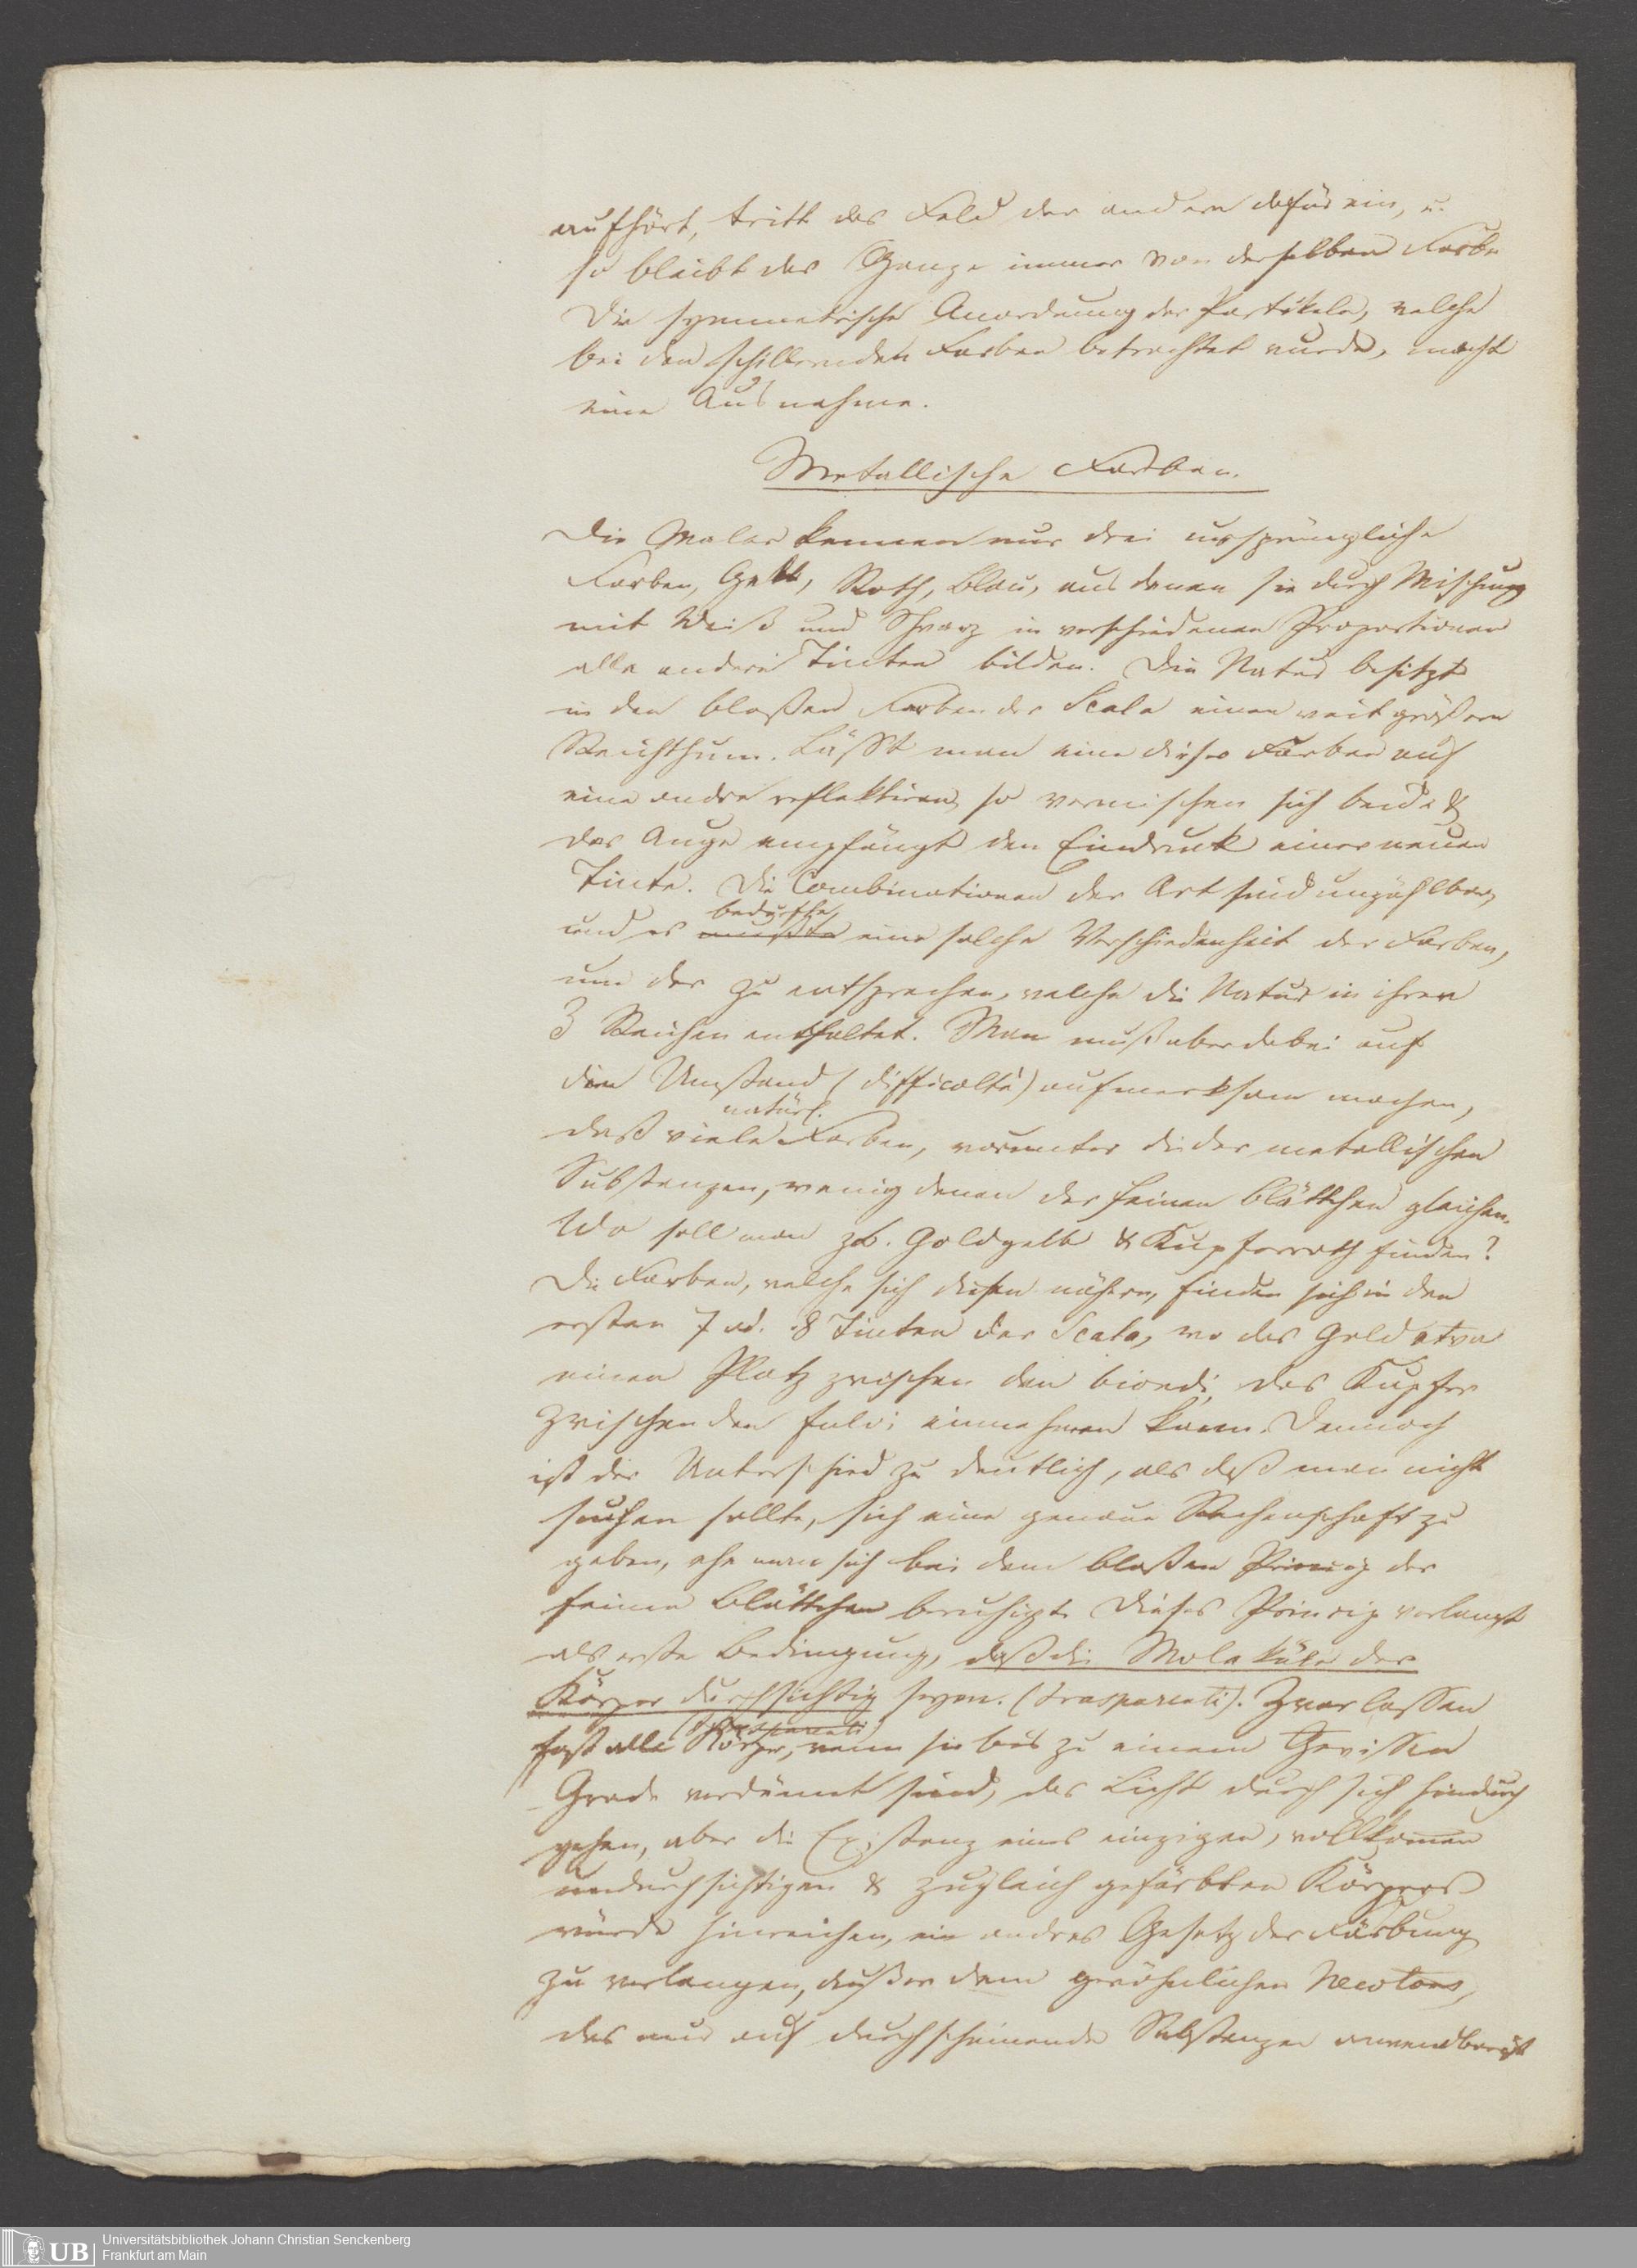 aufhört, tritt das Feld der andern dafür ein, u.
so bleibt das Ganze immer von derselben Farbe
Die symmetrische Anordnung der Partikeln, welche
bei den schillernden Farben betrachtet wurde, macht
eine Ausnahme.
Metallische Farben.
Die Maler kennen nur drei ursprüngliche
Farben, Gelb, Roth, Blau, aus denen sie durch Mischung
mit Weiß und Schwarz in verschiedenen Proportionen
alle andere Tinten bilden. Die Natur besitzt
in den bloßen Farben der Scala einen weit größern
Reichthum. Läßt man eine dieser Farben auf
eine andre reflektiren, so vermischen sich beide &
das Auge empfängt den Eindruck einer neuen
Tinte. Die Combinationen der Art sind unzählbar,
bedurfte
und es mußte eine solche Verschiedenheit der Farben,
um der zu entsprechen, welche die Natur in ihren
3 Reichen entfaltet. Man muß aber dabei auf
den Umstand (difficoltà) aufmerksam machen,
natürl.
daß viele Farben, worunter die der metallischen
Substanzen, wenig denen der feinen Blättchen gleichen.
Wo soll man zb. Goldgelb & Kupferroth finden?
Die Farben, welche sich diesen nähern, finden sich in den
ersten 7 od. 8 Tinten der Scala, wo das Gold etwa
einen Platz zwischen den biondi, das Kupfer
zwischen den fulvi einnehmen kann. Dennoch
ist der Unterschied zu deutlich, als daß man nicht
suchen sollte, sich eine genaue Rechenschaft zu
geben, ehe man sich bei dem bloßen Prinzip der
feinen Blättchen beruhigt. Dieses Prinzip verlangt
als erste Bedingung, daß die Moleküle der
Körper durchsichtig seyen. (trasparenti). Zwar lassen
(trasparenti)
fast alle Körper, wenn sie bis zu einem Gewissen
Grade verdünnt sind, das Licht durch sich hindurch
gehen, aber die Existenz eines einzigen, vollkomen
undurchsichtigen & zugleich gefärbten Körpers
würde hinreichen, ein andres Gesetz der Färbung
zu verlangen, außer dem gewöhnlichen Newtons,
das nur auf durchscheinende Substanzen anwendbar ist
UB
Universitätsbibliothek Johann Christian Senckenberg
Frankfurt am Main